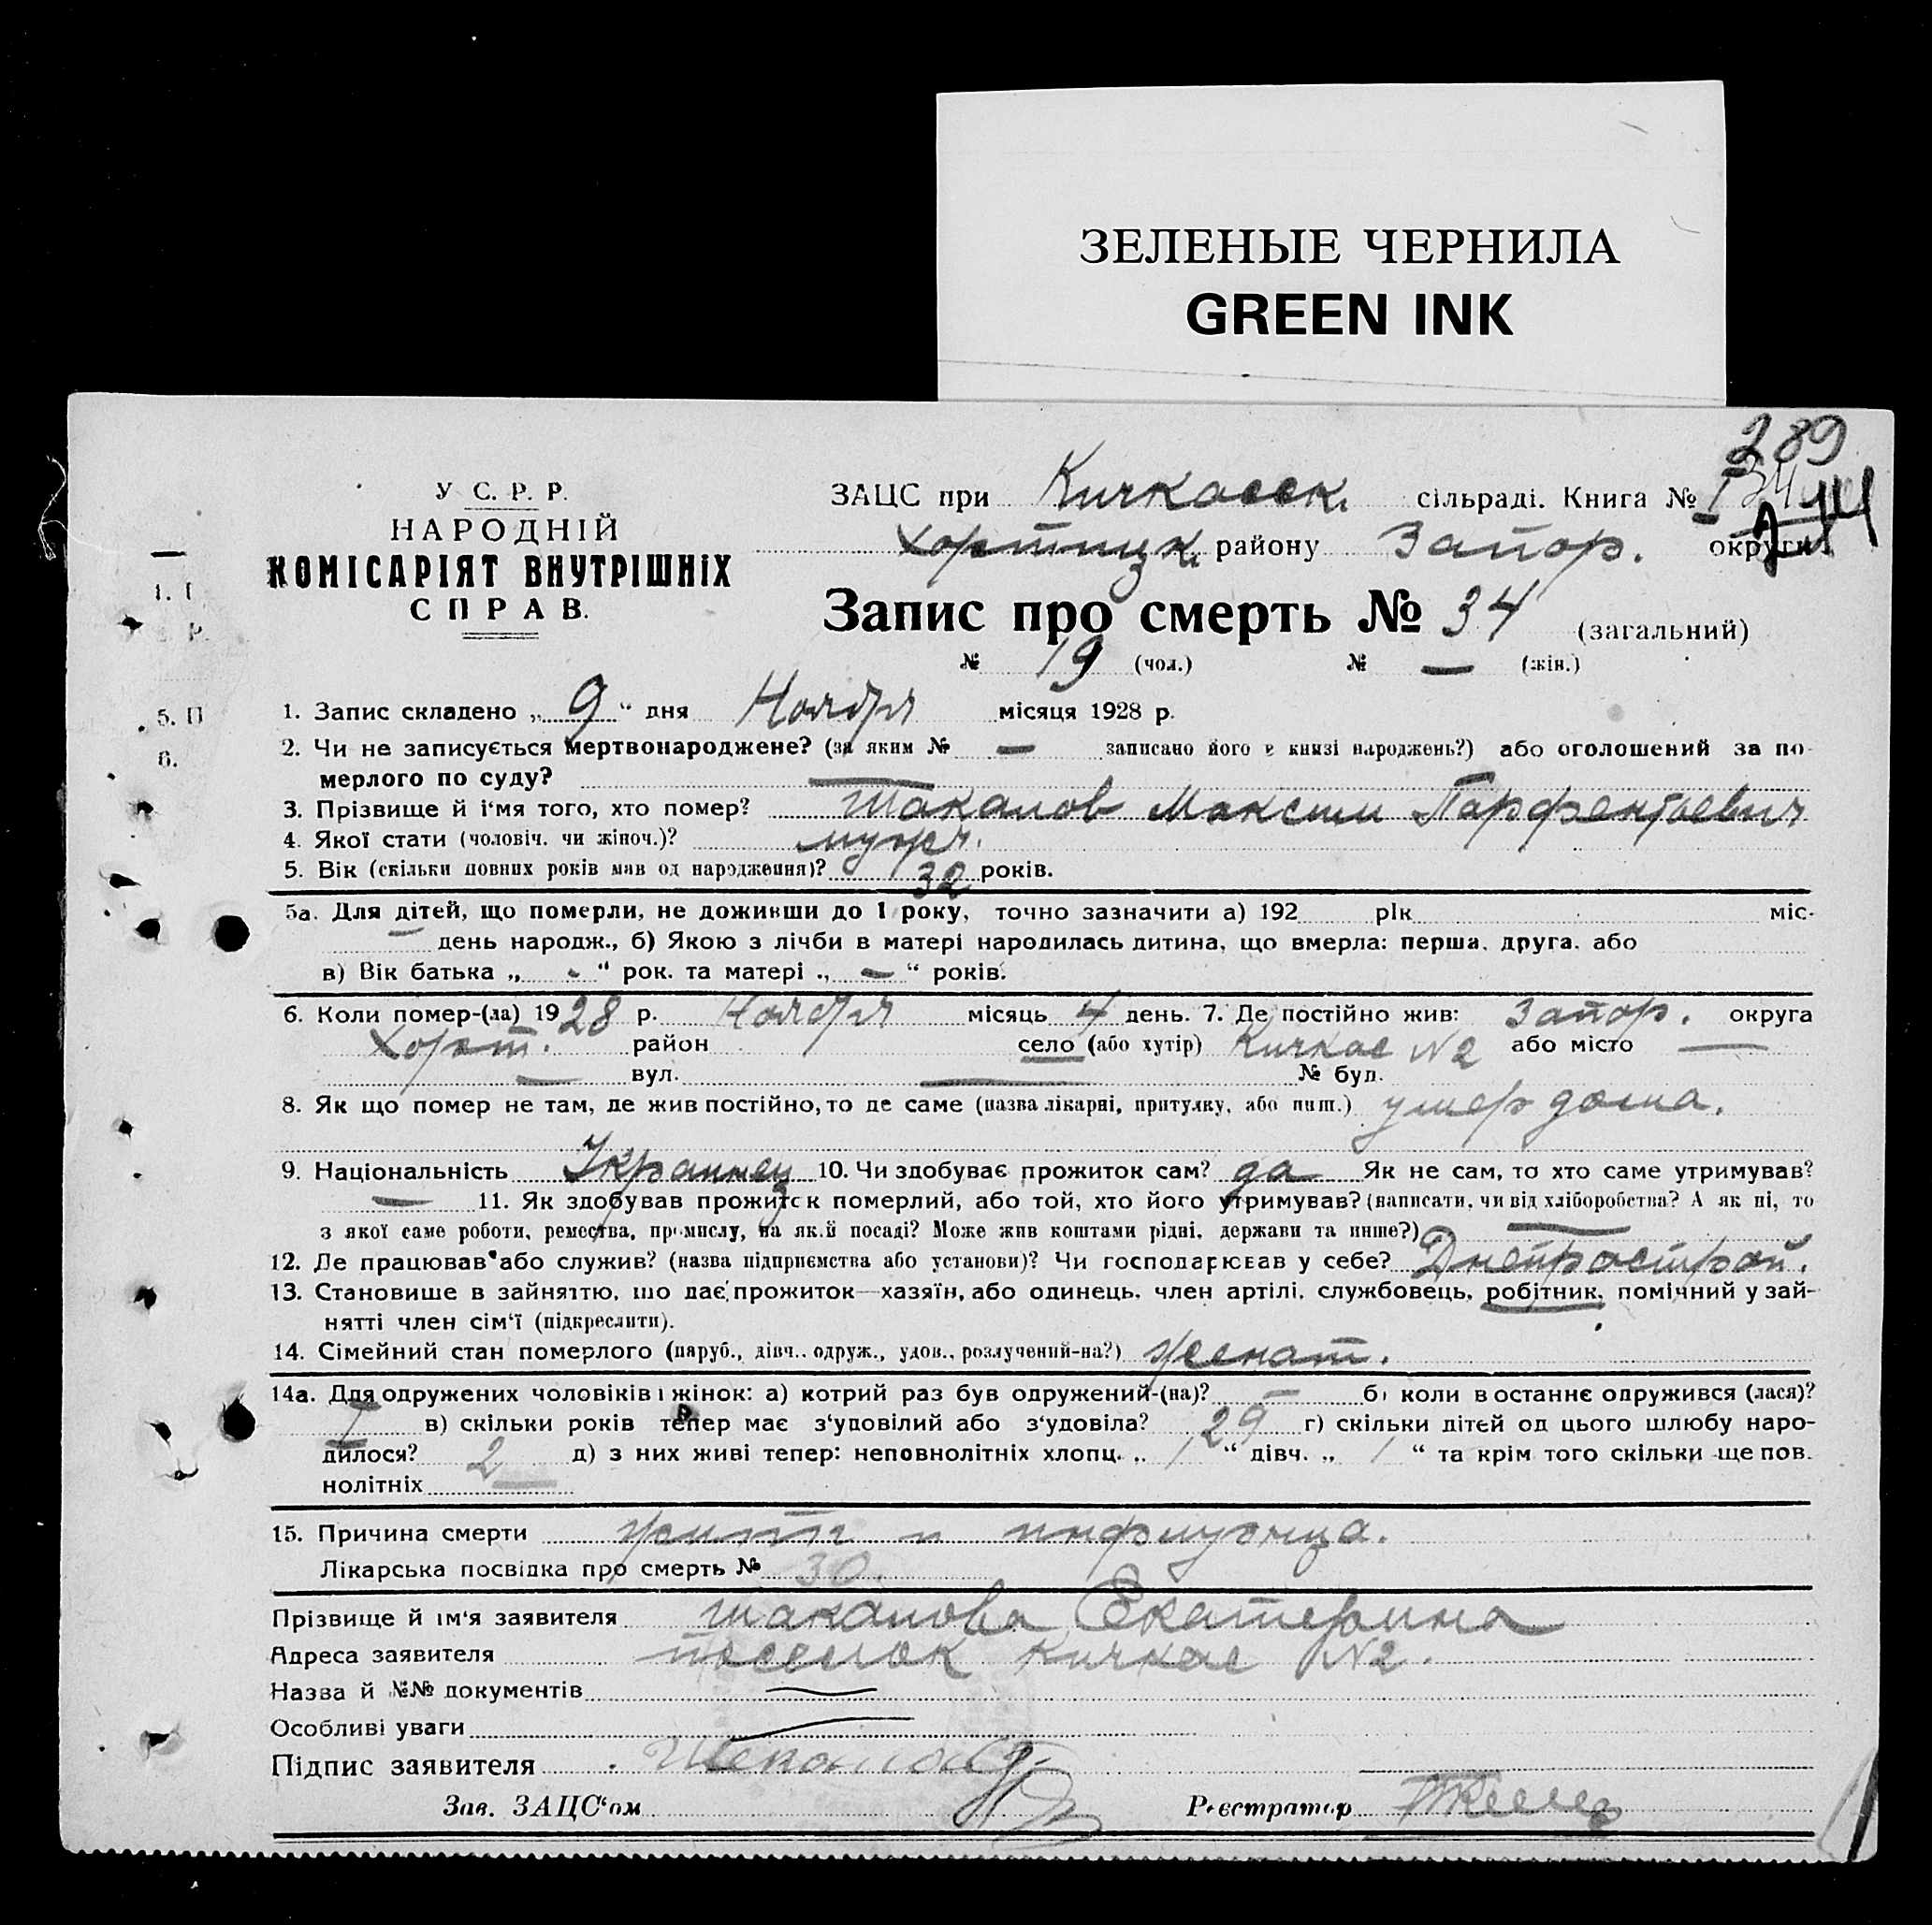 ЗЕЛЕНЫЕ ЧЕРНИЛА
GREEN INK
289
У С. Р. Р.
НАРОДНІЙ
КОМІСАРІЯТ ВНУТРІШНіХ
СПРАВ.
ЗАЦС при Кичкасск. сільраді. Книга № I
Хортицк. району Запор. округи
Запис про смерть № 34 (загальний)
№ 19 (чол.) № — (жін.)
1. Запис складено „ 9 “ дня Ноября місяця 1928 р.
2. Чи не записується мертвонароджене? (за яким № — записано його в книзі народжень?) або оголошений за по-
мерлого по суду? —
3. Прізвище й і'мя того, хто помер? Шакалов Максим Парфентьевич
4. Якої стати (чоловіч. чи жіноч.)? мужч.
5. Вік (скільки повних років мав од народження)? 32 років.
5а. Для дітей, що померли, не доживши до 1 року, точно зазначити а) 192 рік міс-
— день народж., б) Якою з лічби в матері народилась дитина, що вмерла: перша, друга, або
в) Вік батька „ - “ рок. та матері „ — “ років.
6. Коли помер-(ла) 1928 р. Ноября місяць 4 день. 7. Де постійно жив: Запор. округа
Хорт. район село (або хутір) Кичкас N2 або місто —
— вул. — № буд.
8. Як що помер не там, де жив постійно, то де саме (назва лікарні, притулку, або инш.) умер дома.
9. Національність Украинец 10. Чи здобуває прожиток сам? да Як не сам, то хто саме утримував?
— 11. Як здобував прожиток померлий, або той, хто його утримував? (написати, чи від хліборобства? А як ні, то
з якої саме роботи, ремества, промислу, на якій посаді? Може жив коштами рідні, держави та инше?) —
12. Де працював або служив? (назва підприємства або установи)? Чи господарював у себе? Днепрострой.
13. Становише в зайняттю, що дає прожиток—хазяїн, або одинець, член артілі, службовець, робітник, помічний у зай-
нятті член сім'ї (підкреслити).
14. Сімейний стан померлого (паруб., дівч., одруж., удов., розлучений-на?) женат.
14а. Для одружених чоловіків і жінок: а) котрий раз був одружений-(на)? — б) коли востаннє одружився (лася)?
I в) скільки років тепер має з'удовілий або з'удовіла? 29 г) скільки дітей од цього шлюбу наро-
дилося? 2 д) з них живі тепер: неповнолітніх хлопц. „ 1 “ дівч. „ 1 “ та крім того скільки ще пов.
нолітніх —
15. Причина смерти и инфлуэнца.
Лікарська посвідка про смерть № 30.
Прізвище й ім'я заявителя Шакалова Екатерина
Адреса заявителя поселок Кичкас N2.
Назва й №№ документів —
Особливі уваги —
Підпис заявителя
Зав. ЗАЦС'ом Реєстратор
1. І
Р.
5. П
6.